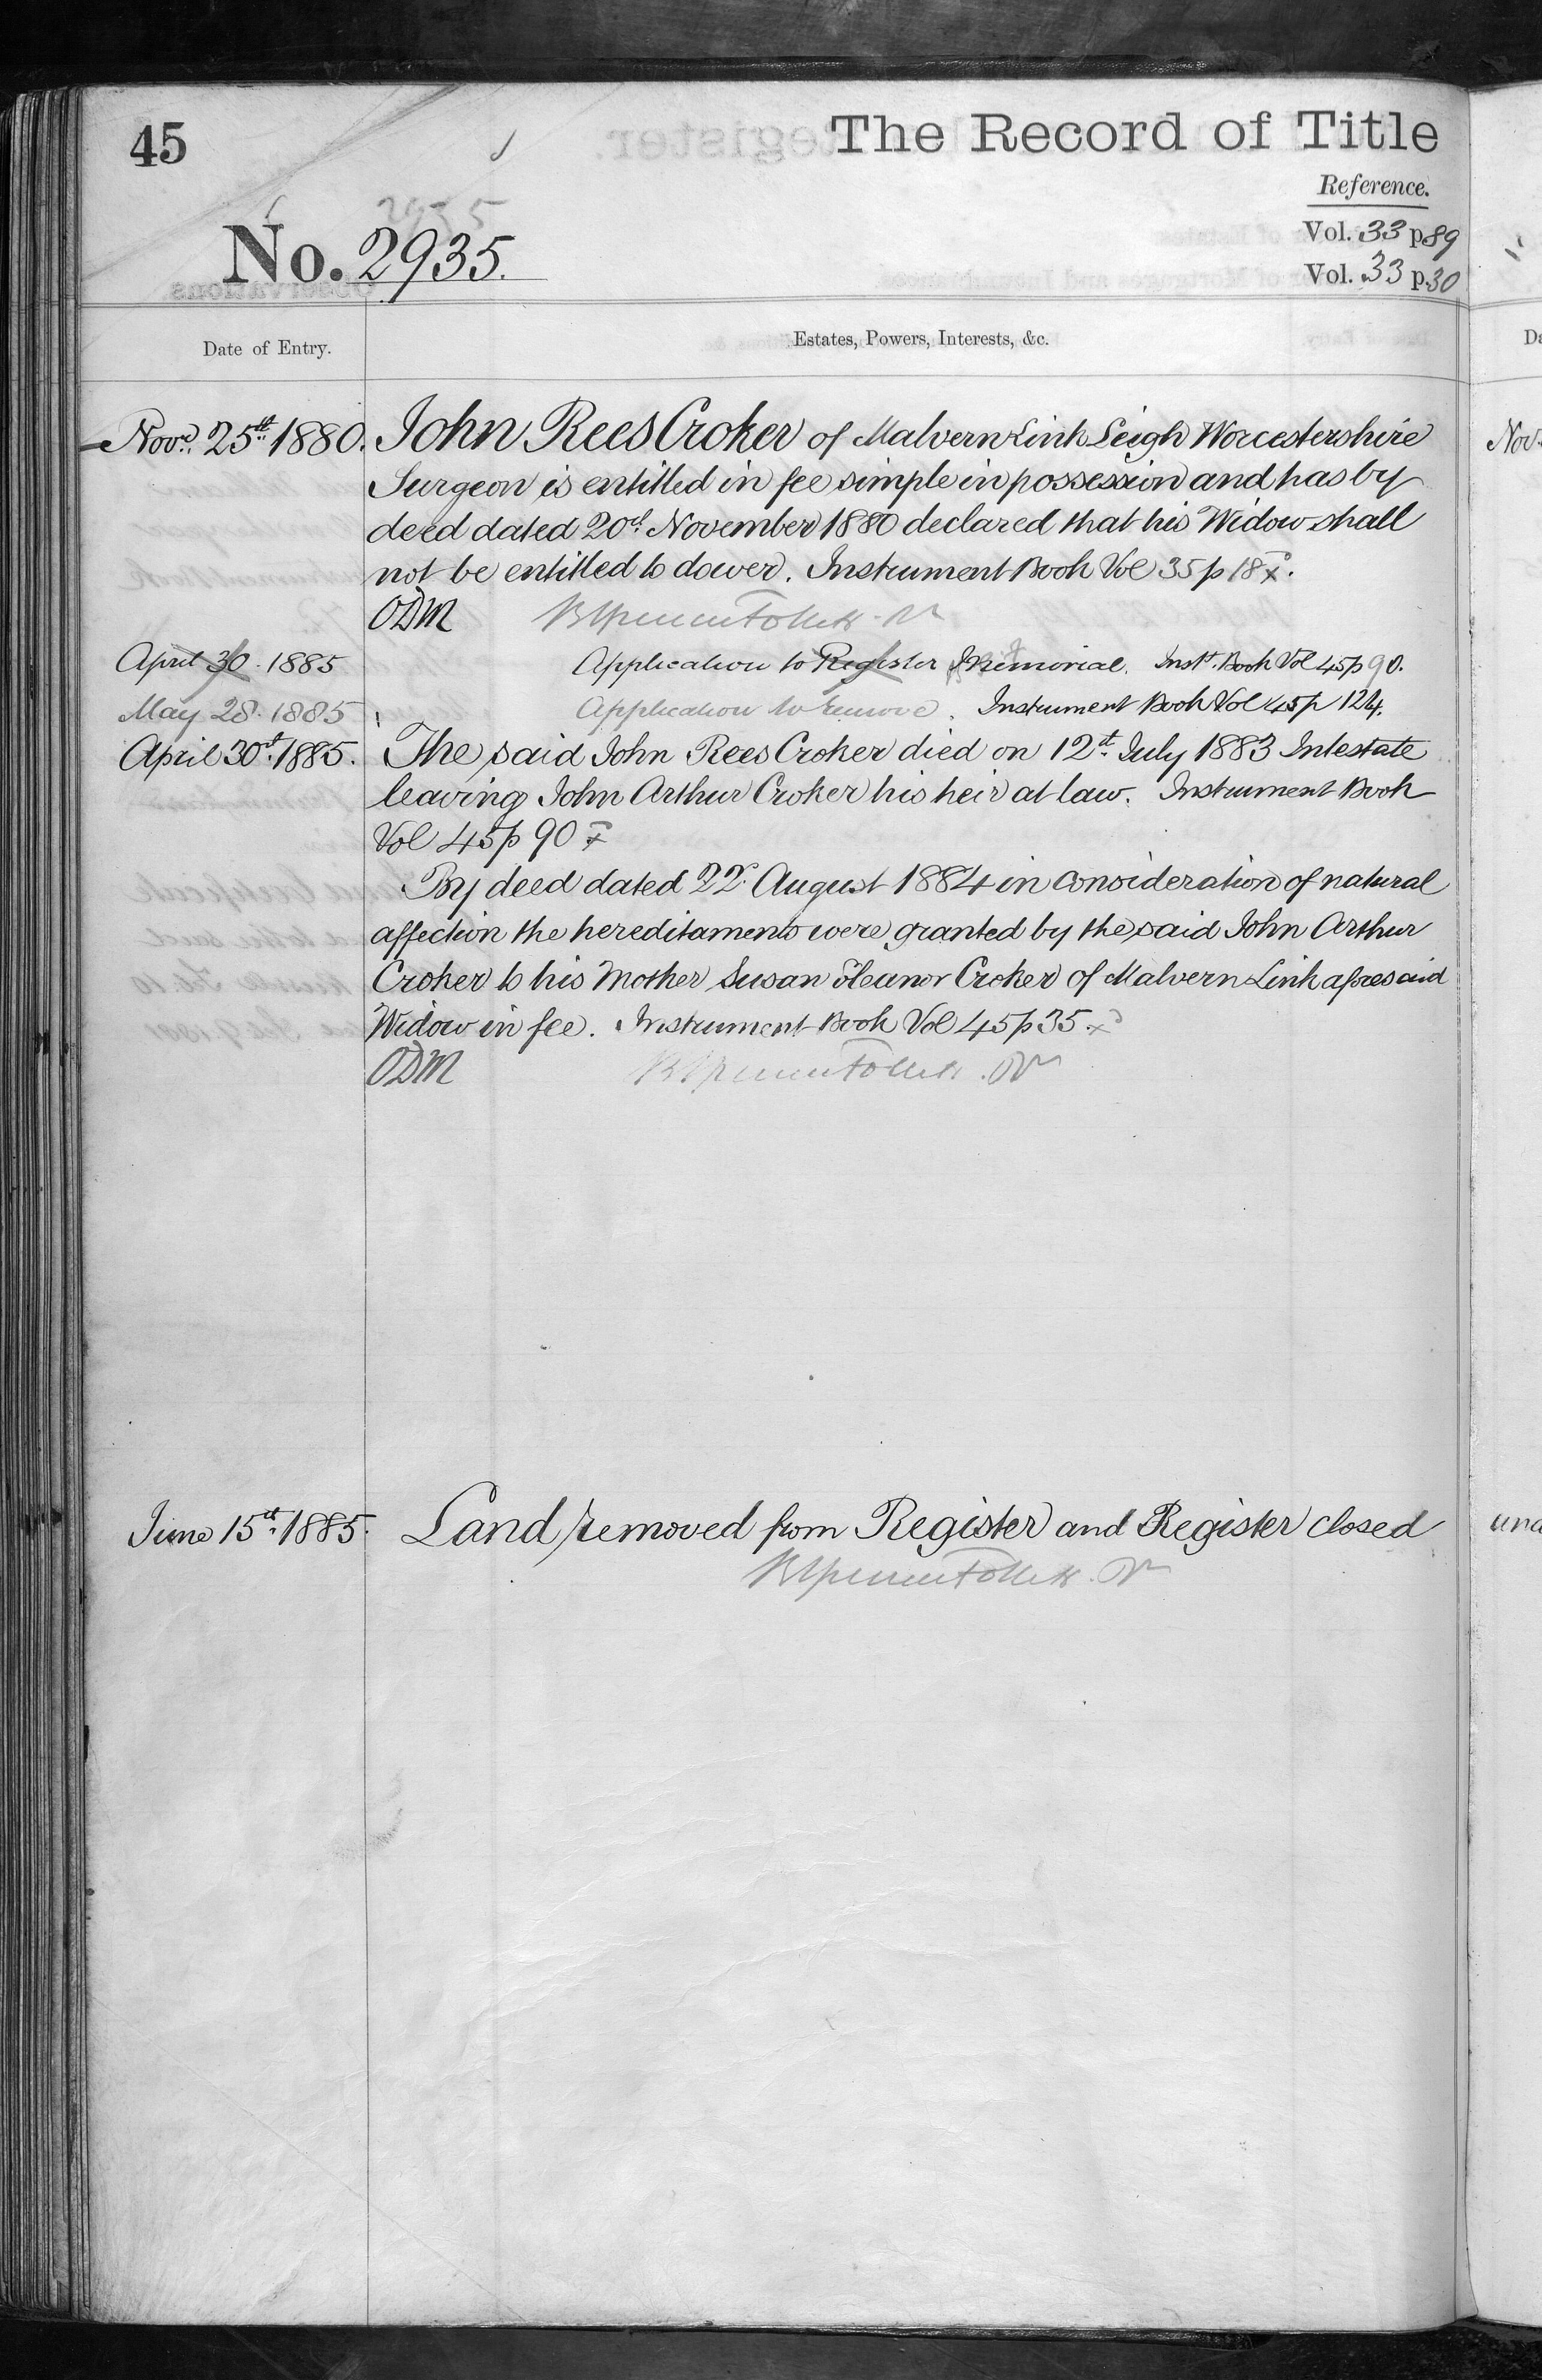 45
The Record of Title
Reference.
Vol. 33 p 89
No. 2935.
Vol. 33 p. 30
Date of Entry.
Estates, Powers, Interests, &c.
Novr. 25th 1880. John Rees Croker of Malvern Link Leigh Worcestershire
Surgeon is entitled in fee simple in possession and has by
deed dated 20th November 1880 declared that his Widow shall
not be entitled to dower. Instrument Book Vol 35 p 18
ODM
April 30. 1885 Application to Register Memorial. Inst. Book Vol 45 p 90.
May 28. 1885 Application to remove. Instrument Book Vol 45 p 124.
April 30th 1885. The said John Rees Croker died on 12th July 1883 Intestate
leaving John Arthur Croker his heir at law. Instrument Book
Vol 45 p 90
By deed dated 22 August 1884 in consideration of natural
affection the hereditaments were granted by the said John Arthur
Croker to his Mother Susan Eleanor Croker of Malvern Link aforesaid
Widow in fee. Instrument Book Vol 45 p 35
ODM
June 15th 1885. Land removed from Register and Register closed